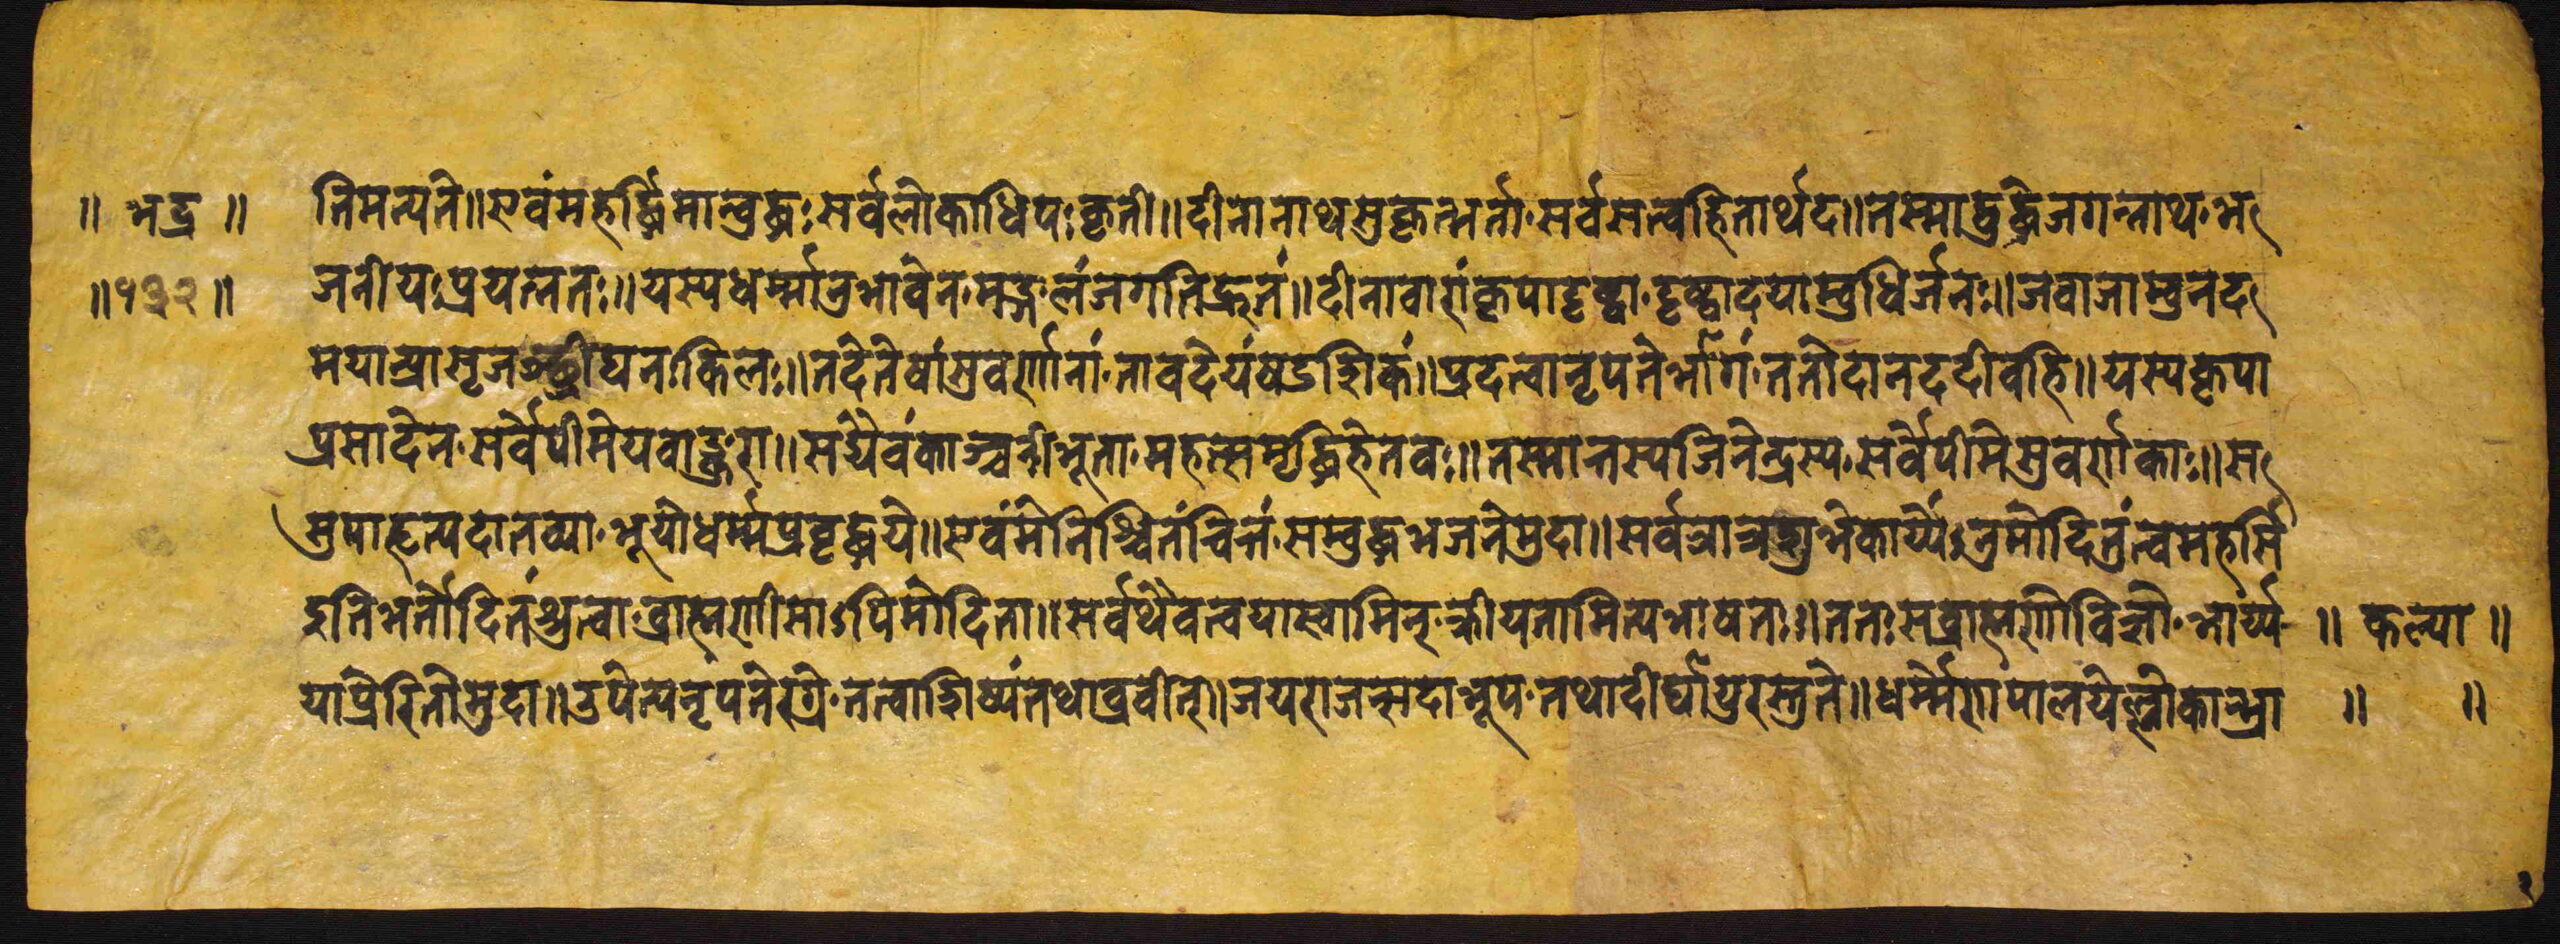 ॥ भद्र ॥ तिमन्यते॥एवंमहर्द्धिमान्बुद्धः सर्वलोकाधिपः कृती॥दीनानाथसुकृत्भर्त्ता सर्वसत्वहितार्थद॥तस्माद्बुद्धोजगन्नाथ भ
॥१३२॥ जनीय प्रयत्नतः॥यस्यधर्म्मानुभावेन मङ्गलंजगतिद्रुतं॥दीनावाहंकृपादृष्ट्वा दृष्ट्वादयाम्बुधिर्जिनः॥जवाजास्तुनद
मयान्प्रासृजच्छ्रीघन किलः॥तदेतेषांसुवर्णानां तावदेयंषडंशिकं॥प्रदत्वानृपतेर्भागं ततोदानददीवहि॥यस्यकृपा
प्रसादेन सर्वेपीमेयवाङ्कुरा॥सद्यैवंकाञ्चनीभूता महत्समृद्धिहेतवः॥तस्मात्तस्यजिनेन्द्रस्य सर्वेपीमेसुवर्णकाः॥स
मुपाहृत्यदातव्या भूयोधर्म्मप्रवृद्धये॥एवंमेनिश्चितंचित्तं सम्बुद्धभजनेमुदा॥सर्वत्रात्रशुभेकार्य्ये ऽनुमोदितुंत्वमर्हसि
इतिभर्त्तोदितंश्रुत्वा ब्राह्मणीसाऽपिमोदिता॥सर्वथैवत्वयास्वामिन् क्रीयतामित्यभाषत॥ततः सब्राह्मणोविज्ञो भार्य्य ॥ कल्या ॥
याप्रेरितोमुदा॥उपेत्यनृपतेरग्रे नत्वाशिष्यंतथाब्रवीत्॥जयराजन्सदाभूप तथादीर्घायुरस्तुते॥धर्म्मेणपालयेल्लोकान्प्रा ॥ ॥